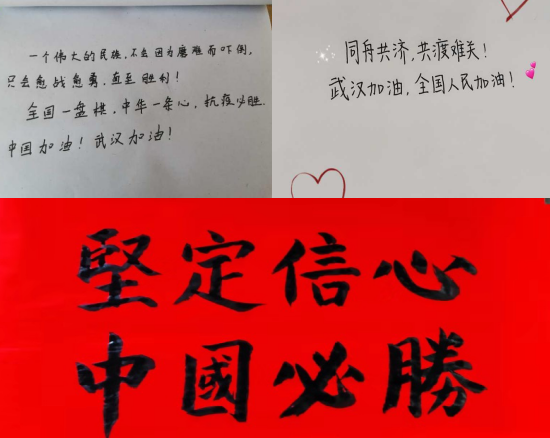 一个伟大的民族，不会因为磨难而吓倒，
只会愈战愈勇，直至胜利！
全国一盘棋，中华一条心，抗疫必胜.
中国加油！武汉加油！
同舟共济，共渡难关！
武汉加油，全国人民加油！
堅定信心
中國必勝